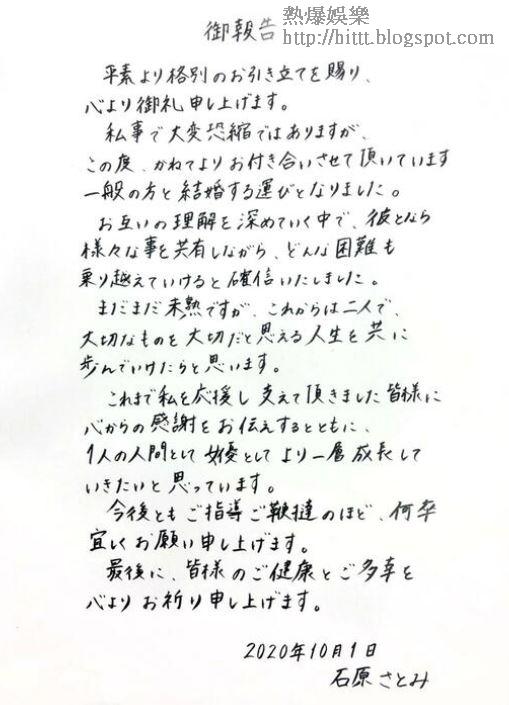 熱爆娛樂
http://hittt.blogspot.com
御報告
平素より格別のお引き立てを賜り、
心より御礼申し上げます。
私事で大変恐縮ではありますが、
この度、かねてよりお付き合いさせて頂いています
一般の方と結婚する運びとなりました。
お互いの理解を深めていく中で、彼となら
様々な事を共有しながら、どんな困難も
乗り越えていけると確信いたしました。
まだまだ未熟ですが、これからは二人で、
大切なものを大切だと思える人生を共に
歩んでいけたらと思います。
これまで私を応援し支えて頂きました皆様に
心からの感謝をお伝えするとともに、
1人の人間として女優としてより一層成長して
いきたいと思っています。
今後ともご指導ご鞭撻のほど、何卒
宜しくお願い申し上げます。
最後に、皆様のご健康とご多幸を
心よりお祈り申し上げます。
2020年10月1日
石原さとみ